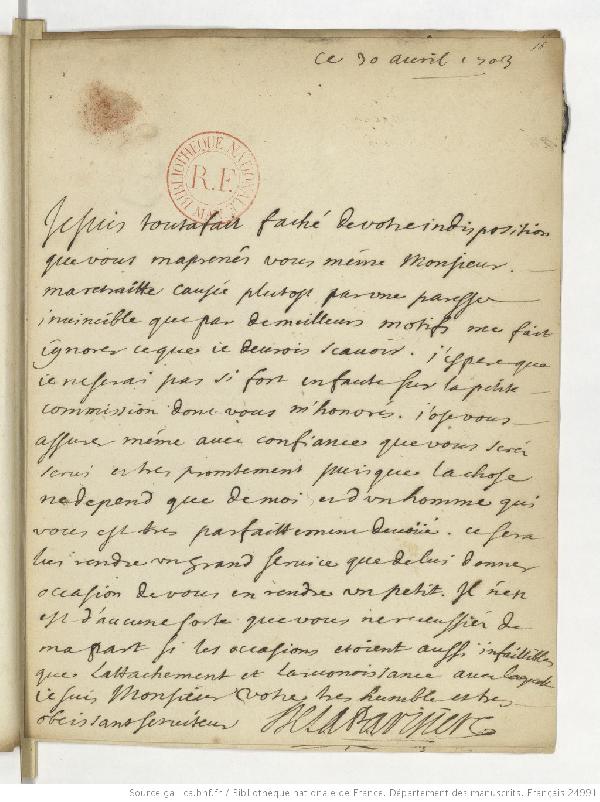 ce 30 auril 1703
BIBLIOTHEQUE NATIONALE
R.F.
Je suis toutafait faché de votre indisposition
que vous maprenés vous méme Monsieur.
ma retraitte causée plutost par vne paresse
inuincible que par de meilleurs motifs me fait
ignorer ce que ie deurois scauoir. j'espere que
ie ne serai pas si fort en faute sur la petite
commission dont vous m'honorés. j'ose vous
assurer méme auec confiance que vous seréz
serui et tres promtement puisque la chose
ne depend que de moi et d'vn homme qui
vous est tres parfaittement deuoüé. ce sera
lui rendre vn grand seruice que de lui donner
occasion de vous en rendre vn petit. Il n'en
est d'aucune sorte que vous ne receussiez de
ma part si les occasions etoient aussi infaillibles
que l'attachement et la reconoissance auec laquelle
ie suis Monsieur votre tres humble et tres
obeissant seruiteur
Source gallica.bnf.fr / Bibliothèque nationale de France. Département des manuscrits. Français 24991